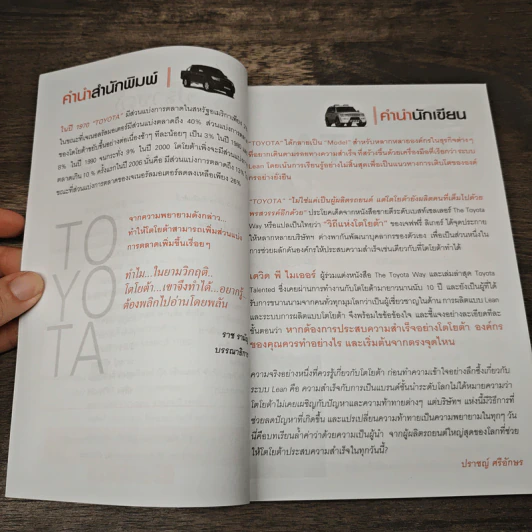 คำนำสำนักพิมพ์
ในปี 1970 "TOYOTA" มีส่วนแบ่งการตลาดในสหรัฐอเมริกาเพียง
ในขณะที่เจเนอรัลมอเตอร์มีส่วนแบ่งการตลาดถึง 40% ส่วนแบ่งการตลาด
ของโตโยต้าขยับขึ้นอย่างต่อเนื่องช้าๆ ทีละน้อยๆ เป็น 3% ในปี 1980
ในปี 1990 จนกระทั่ง 9% ในปี 2000 โตโยต้าเพิ่งจะมีส่วนแบ่ง
ตลาดเกิน 10 % ครั้งแรกในปี 2006 นี่คือ มีส่วนแบ่งการตลาดถึง
ขณะที่ส่วนแบ่งการตลาดของเจเนอรัลมอเตอร์ลดลงเหลือเพียง 26%
TO
YO
TA
จากความพยายามดังกล่าว...
ทำให้โตโยต้าสามารถเพิ่มส่วนแบ่ง
การตลาดเพิ่มขึ้นเรื่อยๆ
ทำไม...ในยามวิกฤติ...
โตโยต้า...เขาจึงทำได้...อยากรู้
ต้องพลิกไปอ่านโดยพลัน
ราช
บรรณาธิการ
คำนำนักเขียน
"TOYOTA" ได้กลายเป็น "Model" สำหรับหลากหลายองค์กรในธุรกิจต่างๆ
ที่อยากเดินตามรอยทางความสำเร็จ ที่สร้างขึ้นด้วยเครื่องมือที่เรียกว่า ระบบ
Lean โดยเน้นการเรียนรู้อย่างไม่สิ้นสุดเพื่อเป็นแนวทางการเติบโตขององค์
กรอย่างยั่งยืน
"TOYOTA" "ไม่ใช่แค่เป็นผู้ผลิตรถยนต์ แต่โตโยต้ายังผลิตคนที่เต็มไปด้วย
พรสวรรค์อีกด้วย" ประโยคเด็ดจากหนังสือขายดีระดับเบสท์เซลเลอร์ The Toyota
Way หรือแปลเป็นไทยว่า "วิถีแห่งโตโยต้า" ของเจฟฟรี่ ลิเกอร์ ได้จุดประกาย
ให้หลากหลายบริษัทฯ ต่างพากันพัฒนาบุคลากรของตัวเอง เพื่อเป็นส่วนหนึ่งใน
การช่วยผลักดันองค์กรให้ประสบความสำเร็จเช่นเดียวกับที่โตโยต้าทำได้
เดวิด พี ไมเออร์ ผู้ร่วมแต่งหนังสือ The Toyota Way และเล่มล่าสุด Toyota
Talented ซึ่งเคยผ่านการทำงานกับโตโยต้ามายาวนานนับ 10 ปี และยังเป็นผู้ที่ได้
รับการขนานนามจากคนทั่วทุกมุมโลกว่าเป็นผู้เชี่ยวชาญในด้าน การผลิตแบบ Lean
และระบบการผลิตแบบโตโยต้า จึงพร้อมไขข้อข้องใจ และชี้แจงอย่างละเอียดทีละ
ขั้นตอนว่า หากต้องการประสบความสำเร็จอย่างโตโยต้า องค์กร
ของคุณควรทำอย่างไร และเริ่มต้นจากตรงจุดไหน
ความจริงอย่างหนึ่งที่ควรรู้เกี่ยวกับโตโยต้า ก่อนทำความเข้าใจอย่างลึกซึ้งเกี่ยวกับ
ระบบ Lean คือ ความสำเร็จกับการเป็นแบรนด์ชั้นนำระดับโลกไม่ได้หมายความว่า
โตโยต้าไม่เคยเผชิญกับปัญหาและความท้าทายต่างๆ แต่บริษัทฯ แห่งนี้มีวิธีการที่
ช่วยลดปัญหาที่เกิดขึ้น และแปรเปลี่ยนความท้าทายเป็นความพยายามในทุกๆ วัน
นี่คือบทเรียนล้ำค่าว่าด้วยความเป็นผู้นำ จากผู้ผลิตรถยนต์ใหญ่สุดของโลกที่ช่วย
ให้โตโยต้าประสบความสำเร็จในทุกวันนี้?
ปราชญ์ ศรีอักษร